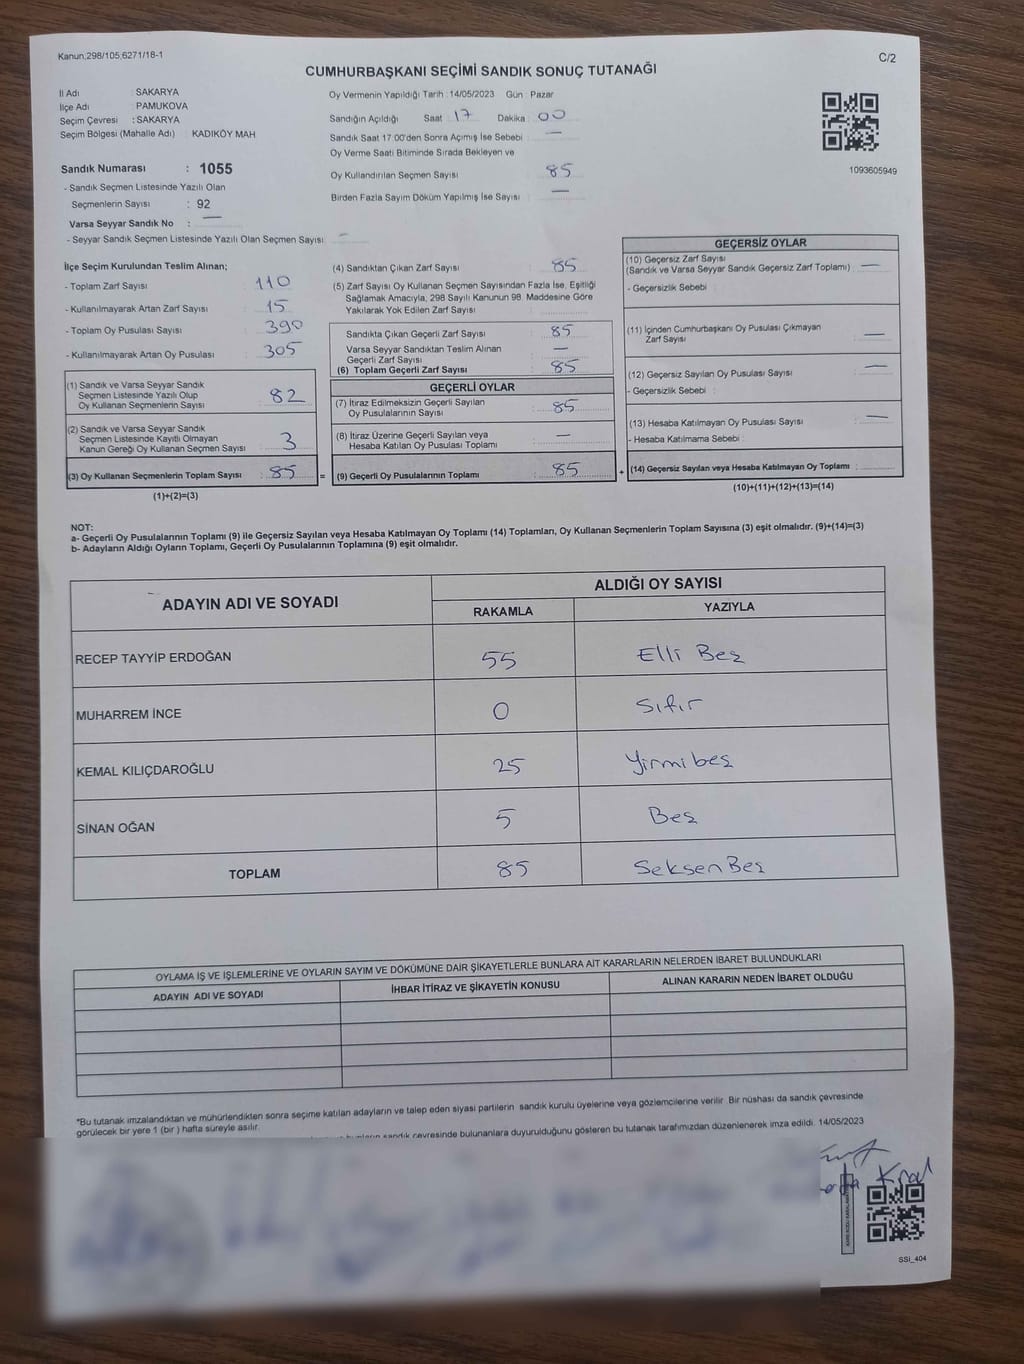 Kanun,298/105,6271/18-1
C/2
CUMHURBAŞKANI SEÇİMİ SANDIK SONUÇ TUTANAĞI
İl Adı : SAKARYA
İlçe Adı : PAMUKOVA
Seçim Çevresi : SAKARYA
Seçim Bölgesi (Mahalle Adı) : KADIKÖY MAH
Sandık Numarası : 1055
- Sandık Seçmen Listesinde Yazılı Olan
Seçmenlerin Sayısı : 92
Varsa Seyyar Sandık No : —
- Seyyar Sandık Seçmen Listesinde Yazılı Olan Seçmen Sayısı : —
Oy Vermenin Yapıldığı Tarih : 14/05/2023 Gün : Pazar
Sandığın Açıldığı Saat : 17 Dakika : 00
Sandık Saat 17:00'den Sonra Açılmış İse Sebebi : —
Oy Verme Saati Bitiminde Sırada Bekleyen ve
Oy Kullandırılan Seçmen Sayısı : 85
Birden Fazla Sayım Döküm Yapılmış İse Sayısı : —
1093605949
İlçe Seçim Kurulundan Teslim Alınan;
- Toplam Zarf Sayısı : 110
- Kullanılmayarak Artan Zarf Sayısı : 15
- Toplam Oy Pusulası Sayısı : 390
- Kullanılmayarak Artan Oy Pusulası : 305
(1) Sandık ve Varsa Seyyar Sandık
Seçmen Listesinde Yazılı Olup
Oy Kullanan Seçmenlerin Sayısı : 82
(2) Sandık ve Varsa Seyyar Sandık
Seçmen Listesinde Kayıtlı Olmayan
Kanun Gereği Oy Kullanan Seçmen Sayısı : 3
(3) Oy Kullanan Seçmenlerin Toplam Sayısı : 85 =
(1)+(2)=(3)
(4) Sandıktan Çıkan Zarf Sayısı : 85
(5) Zarf Sayısı Oy Kullanan Seçmen Sayısından Fazla İse, Eşitliği
Sağlamak Amacıyla, 298 Sayılı Kanunun 98. Maddesine Göre
Yakılarak Yok Edilen Zarf Sayısı :
Sandıkta Çıkan Geçerli Zarf Sayısı : 85
Varsa Seyyar Sandıktan Teslim Alınan
Geçerli Zarf Sayısı : —
(6) Toplam Geçerli Zarf Sayısı : 85
GEÇERLİ OYLAR
(7) İtiraz Edilmeksizin Geçerli Sayılan
Oy Pusulalarının Sayısı : 85
(8) İtiraz Üzerine Geçerli Sayılan veya
Hesaba Katılan Oy Pusulası Toplamı : —
(9) Geçerli Oy Pusulalarının Toplamı : 85 +
GEÇERSİZ OYLAR
(10) Geçersiz Zarf Sayısı
(Sandık ve Varsa Seyyar Sandık Geçersiz Zarf Toplamı) : —
- Geçersizlik Sebebi :
(11) İçinden Cumhurbaşkanı Oy Pusulası Çıkmayan
Zarf Sayısı : —
(12) Geçersiz Sayılan Oy Pusulası Sayısı : —
- Geçersizlik Sebebi :
(13) Hesaba Katılmayan Oy Pusulası Sayısı : —
- Hesaba Katılmama Sebebi :
(14) Geçersiz Sayılan veya Hesaba Katılmayan Oy Toplamı :
(10)+(11)+(12)+(13)=(14)
NOT:
a- Geçerli Oy Pusulalarının Toplamı (9) ile Geçersiz Sayılan veya Hesaba Katılmayan Oy Toplamı (14) Toplamları, Oy Kullanan Seçmenlerin Toplam Sayısına (3) eşit olmalıdır. (9)+(14)=(3)
b- Adayların Aldığı Oyların Toplamı, Geçerli Oy Pusulalarının Toplamına (9) eşit olmalıdır.
ADAYIN ADI VE SOYADI
ALDIĞI OY SAYISI
RAKAMLA YAZIYLA
RECEP TAYYİP ERDOĞAN 55 Elli Beş
MUHARREM İNCE 0 Sıfır
KEMAL KILIÇDAROĞLU 25 Yirmibeş
SİNAN OĞAN 5 Beş
TOPLAM 85 SeksenBeş
OYLAMA İŞ VE İŞLEMLERİNE VE OYLARIN SAYIM VE DÖKÜMÜNE DAİR ŞİKAYETLERLE BUNLARA AİT KARARLARIN NELERDEN İBARET BULUNDUKLARI
ADAYIN ADI VE SOYADI İHBAR İTİRAZ VE ŞİKAYETİN KONUSU ALINAN KARARIN NEDEN İBARET OLDUĞU
*Bu tutanak imzalandıktan ve mühürlendikten sonra seçime katılan adayların ve talep eden siyasi partilerin sandık kurulu üyelerine veya gözlemcilerine verilir. Bir nüshası da sandık çevresinde
görülecek bir yere 1 (bir) hafta süreyle asılır.
sandık çevresinde bulunanlara duyurulduğunu gösteren bu tutanak tarafımızdan düzenlenerek imza edildi. 14/05/2023
SSİ_404